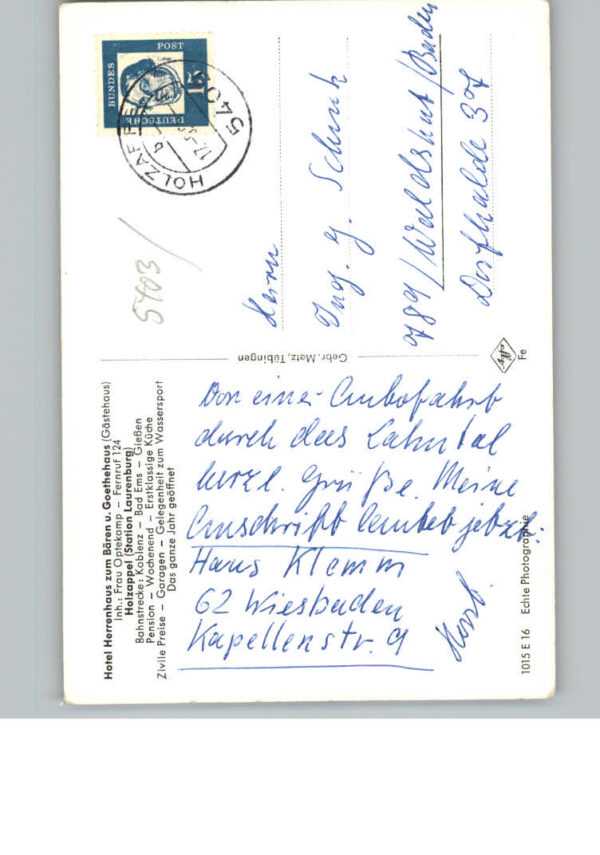 Hotel Herrenhaus zum Bären u. Goethehaus (Gästehaus)
Inh.: Frau Optekamp – Fernruf 124
Holzappel (Station Laurenburg)
Bahnstrecke: Koblenz – Bad Ems – Gießen
Pension – Wochenend – Erstklassige Küche
Zivile Preise – Garagen – Gelegenheit zum Wassersport
Das ganze Jahr geöffnet
Von einer Autofahrt
durch das Lahntal
herzl. Grüße. Meine
Anschrift lautet jetzt:
Hans Klemm
62 Wiesbaden
Kapellenstr. 9
1015 E 16 Echte Photographie
Gebr. Metz, Tübingen
Fe
DEUTSCHE
BUNDES
POST
15
5409
HOLZAPPEL
5403
Herrn
Ing. G. Schenk
789/Waldshut/Baden